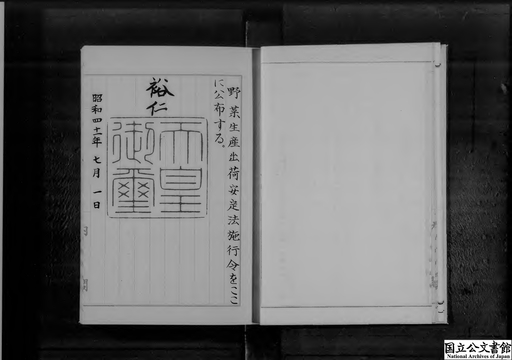 野菜生産出荷安定法施行令をここ
に公布する。
裕仁
天皇
御璽
昭和四十一年七月一日
国立公文書館
National Archives of Japan